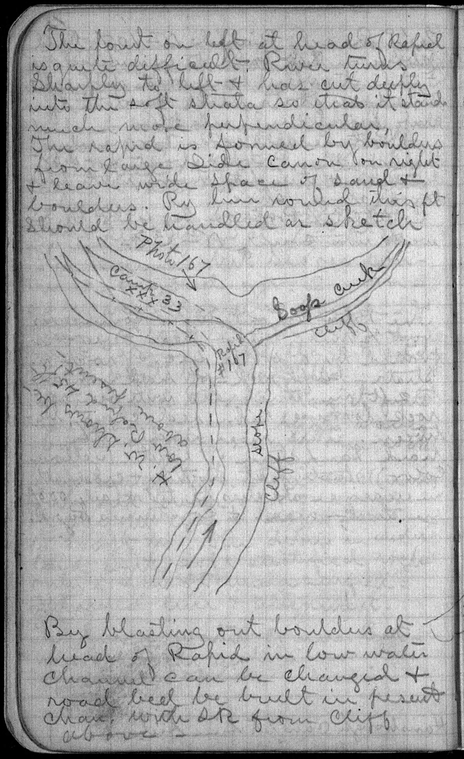 The point on left at head of Rapid
is quite difficult River turns
Sharply to left & has cut deeply
into the soft strata so that it stands
much more perpendicular,
The rapid is formed by boulders
from large Side Canon on right
& leave wide space of sand &
boulders. Ry line round this pt
should be handled as sketch
Photo 167
Camp 33
XXX
Soap Creek
Cliffs
Rapid
#167
slope
Cliff
H. W. should be
low Rapid 45 ft
above
By blasting out boulders at
head of Rapid in low water
Channel can be changed &
road bed be built in present
Chan. with Stk from Cliff
above -